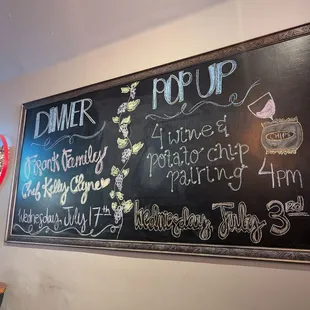 DINNER
Frank Family
Chef Kelly Clyne
Wednesday July 17th
POP UP
4 wine &
potato chip
pairing
4pm
CHIPS
Wednesday July 3rd